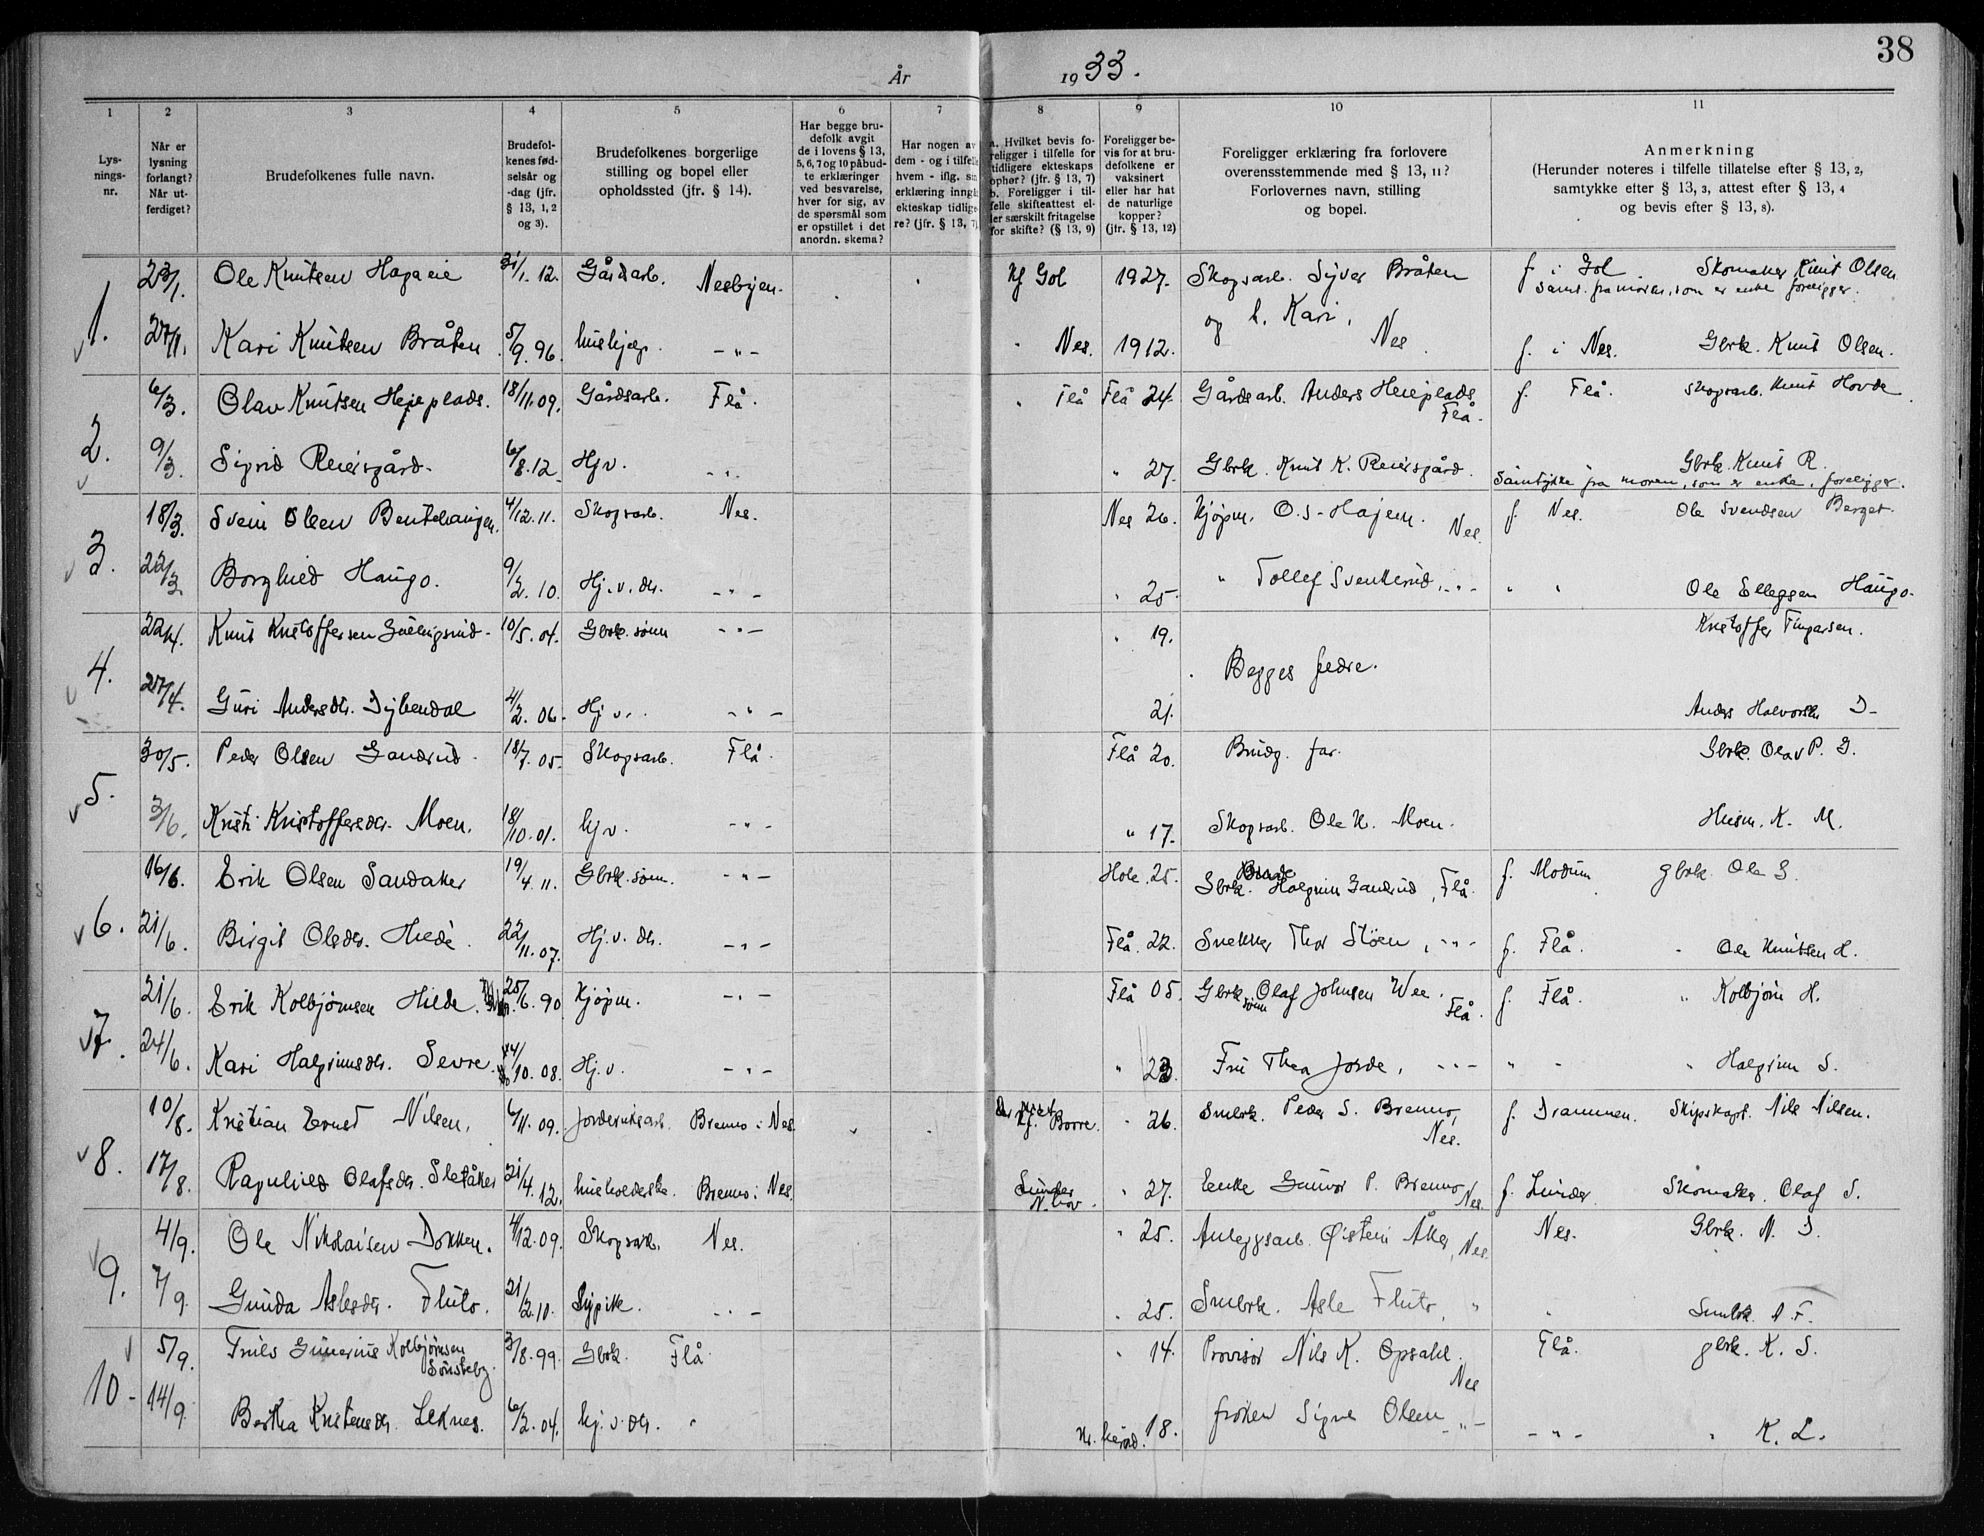 38
År 1933.
1 2 3 4 5 6 7 8 9 10 11
Lysningsnr.
Når er lysning forlangt? Når utferdiget?
Brudefolkenes fulle navn.
Brudefolkenes fødselsår og -dag (jfr. § 13, 1, 2 og 3).
Brudefolkenes borgerlige stilling og bopel eller opholdssted (jfr. § 14).
Har begge brudefolk avgit de i lovens § 13, 5, 6, 7 og 10 påbudte erklæringer ved besvarelse, hver for sig, av de spørsmål som er opstillet i det anordn. skema?
Har nogen av dem - og i tilfelle hvem - iflg. sin erklæring inngått ekteskap tidligere? (jfr. § 13, 7)
a. Hvilket bevis foreligger i tilfelle for tidligere ekteskaps ophør? (jfr. § 13, 7) b. Foreligger i tilfelle skifteattest eller særskilt fritagelse for skifte? (§ 13, 9)
Foreligger bevis for at brudefolkene er vaksinert eller har hat de naturlige kopper? (jfr. § 13, 12)
Foreligger erklæring fra forlovere overensstemmende med § 13, 11? Forlovernes navn, stilling og bopel.
Anmerkning (Herunder noteres i tilfelle tillatelse efter § 13, 2, samtykke efter § 13, 3, attest efter § 13, 4 og bevis efter § 13, 8).
1. 23/1. Ole Knutsen Hagaeie 31/1. 12. Gårdsarb. Nesbyen. Gol 1927. Skogsarb. Syver Bråten f. i Gol. Skomaker Knut Olsen
Samt. fra moren, som er enke foreligger.
og h. Kari, Nes
27/1. Kari Knutsen Bråten 5/9. 96. hushjelp -"- Nes. 1912. f. i Nes. Gbrk. Knut Olsen.
2. 6/3. Olav Knutsen Heieplads. 18/11. 09. Gårdsarb. Flå. Flå Flå 24. Gårdsarb. Anders Heieplads Flå. f. Flå. Skogsarb. Knut Hovde
9/3. Sigrid Reiersgård. 6/8. 12 Hjv. -"- " 27. Gbrk. Knut K. Reiersgård. Gbrk. Knut R.
Samtykke fra moren, som er enke, foreligger.
3. 18/3. Svein Olsen Bentehaugen. 4/12. 11. Skogsarb. Nes. Nes 26. Kjøpm. O. S. Hajem. Nes. f. Nes. Ole Svendsen Berget.
22/3. Borghild Haugo. 9/2. 10. Hj. v. dr. -"- " 25. " Tollef Svenkerud, -"- " " Ole Ellegsen Haugo.
4. 22/4. Knut Kristoffersen Gulingsrud. 10/5. 04. Gbrk. sønn -"- " 19. Kristoffer Fingarsen.
Begges fedre.
27/4. Guri Andersdr. Dybendal 4/2. 06. Hj v. -"- 21. Anders Halvorsen D-
5. 30/5. Peder Olsen Gandrud. 18/7. 05. Skogsarb. Flå. Flå 20. Brudg. far. Gbrk. Olav P. G.
3/6. Kristi Kristoffersdr. Moen. 18/10. 01. hjv. -"- " 17. Skogsarb. Ole K. Moen. Husm. K. M.
6. 16/6. Erik Olsen Sandaker 19/4. 11. Gbrk. sønn. -"- Hole 25. Gbrk. Halgrim Gandrud, Flå. f. Modum gbrk. Ole S.
21/6. Birgit Olsdr. Hilde. 22/11. 07. Hj. v. dr. -"- Flå. 22. Snekker Thor Støen, -"- f. Flå. " Ole Knutsen H.
7. 21/6. Erik Kolbjørnsen Hilde. 25/6. 90 Kjøpm. -"- Flå 05. Gbrk. sønn Olaf Johnsen Wee. Flå. f. Flå. " Kolbjørn H.
24/6. Kari Halgrimsdr. Sevre. /10. 08. Hj. v. -"- " 23. Fru Thea Jorde, -"- " " " Halgrim S.
8. 10/8. Kristian Ernst Nilsen. 6/11. 09. Jordbruksarb. Brenno i Nes. Borre. " 26. Smbrk. Peder S. Brenno, Nes. f. Drammen. Skipskapt. Nils Nilsen.
17/8. Ragnhild Olafsdr. Sletåker 21/4. 12. husholderske. Brenno i Nes. Lunder " 27. Enke Gunvor P. Brenno, Nes. f. Lunder Skomaker. Olaf S.
9. 4/9. Ole Nikolaisen Dokken. 4/12. 09. Skogsarb. Nes. " 25. Anleggsarb. Øistein Åker, Nes. Nes. Gbrk. N. D.
7/9. Gunda Aslesdr. Fluto. 21/2. 10. Sypike. -"- " 25. Smbrk. Asle Fluto, " " Smbrk. A F.
10. 5/9. Truls Gunerius Kolbjørnsen Sønsteby. 3/8. 99. Gbrk. Flå " 14. Provisor Nils K. Opsahl. Nes Flå. gbrk. K. S.
14/9 Bertha Kristensdr. Leknes. 6/2. 04. hj. v. dr. " herad. 18. frøken Signe Olsen -"- -"- " K. L.